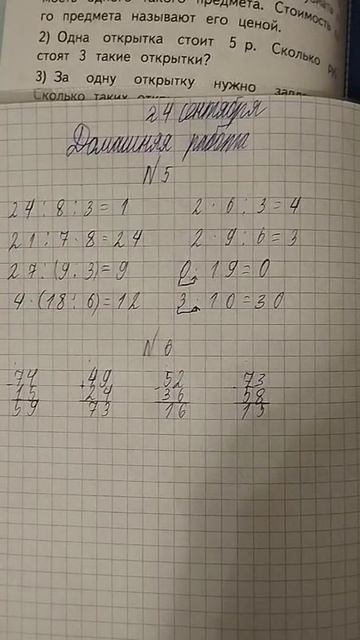 мость одного такого предмета. Стоимость
го предмета называют его ценой.
2) Одна открытка стоит 5 р. Сколько
стоят 3 такие открытки?
3) За одну открытку нужно
Сколько таких
24 сентября
Домашняя работа
№5
24 : 8 : 3 = 1 2 · 6 : 3 = 4
21 : 7 · 8 = 24 2 · 9 : 6 = 3
27 : (9 : 3) = 9 0 · 19 = 0
4 · (18 : 6) = 12 3 · 10 = 30
№6
-74 +49 -52 -73
15 24 36 58
59 73 16 15